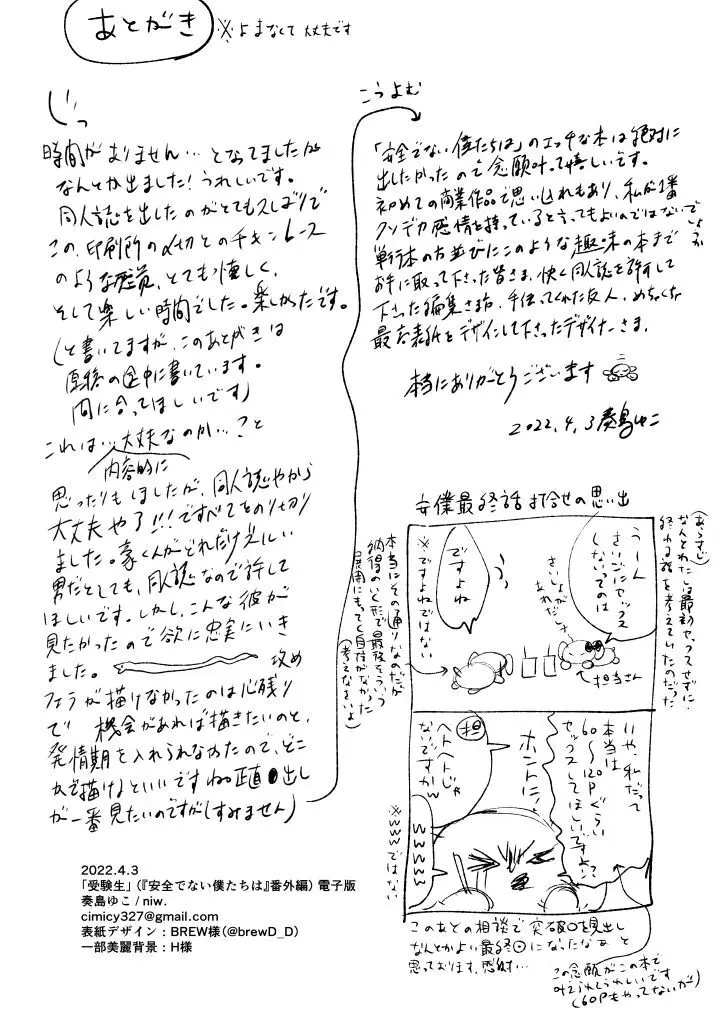 あとがき
※よまなくて大丈夫です
じつ
時間がありません… となってましたが
なんとか出ました！うれしいです。
同人誌を出したのがとても久しぶりで
この、印刷所の〆切とのチキンレース
のような感覚、とても懐しく、
そして楽しい時間でした。楽しかったです。
(と書いてますが、このあとがきは
原稿の途中に書いています。
間に合ってほしいです)
これは…大丈夫なのか…？と
内容的に
思ったりもしましたが、同人誌やから
大丈夫や了!!!ですべてをのり切り
ました。豪くんがどれだけ
男だとしても、同人誌なので許して
ほしいです。しかし、こんな彼が
見たかったので欲に忠実にいき
ました。
攻め
フェラが描けなかったのは心残り
で 機会があれば描きたいのと、
発情期を入れられなかったので、どこ
かで描けるといいですね。
が一番見たいのですが(すみません)
こうよむ
「安全でない僕たちは」のエッチな本は絶対に
出したかったので念願叶って嬉しいです。
初めての商業作品で思い入れもあり、私が1番
クソデカ感情を持っていると言ってもよいのではないで
しょうか
単行本の方並びにこのような趣味の本まで
お手に取って下さった皆さま、快く同人誌を許して
下さった編集さま、手伝ってくれた友人、めちゃくちゃ
最高表紙をデザインして下さったデザイナーさま、
本当にありがとうございます
2022.4.3 奏島ゆこ
安僕最終話打合せの思い出
(あらすじ)
なんとわたしは最初セックスせずに
終わる話を考えていたのだった
うーん
さいごにセックス
しないってのは
さいしょが
あれだしナ
←担当さん
うっ
ですよね
※ですよねではない
本当にその通りなのだが
納得のいく形で最後そういう
展開にもってく自信がなかった
(考えなさいよ)
いや、私だって
本当は
60〜120Pぐらい
セックスしてほしいですよ？
ホントに！
担
ヘトヘトじゃ
ないですかw
wwwww
※wwwではない
このあとの相談で突破口を見出し
なんとかよい最終回になったなぁと
思っております。感謝…
この念願がこの本で
叶えられうれしいです
(60Pもやってないが)
2022.4.3
「受験生」（『安全でない僕たちは』番外編）電子版
奏島ゆこ / niw.
cimicy327@gmail.com
表紙デザイン：BREW様（@brewD_D）
一部美麗背景：H様